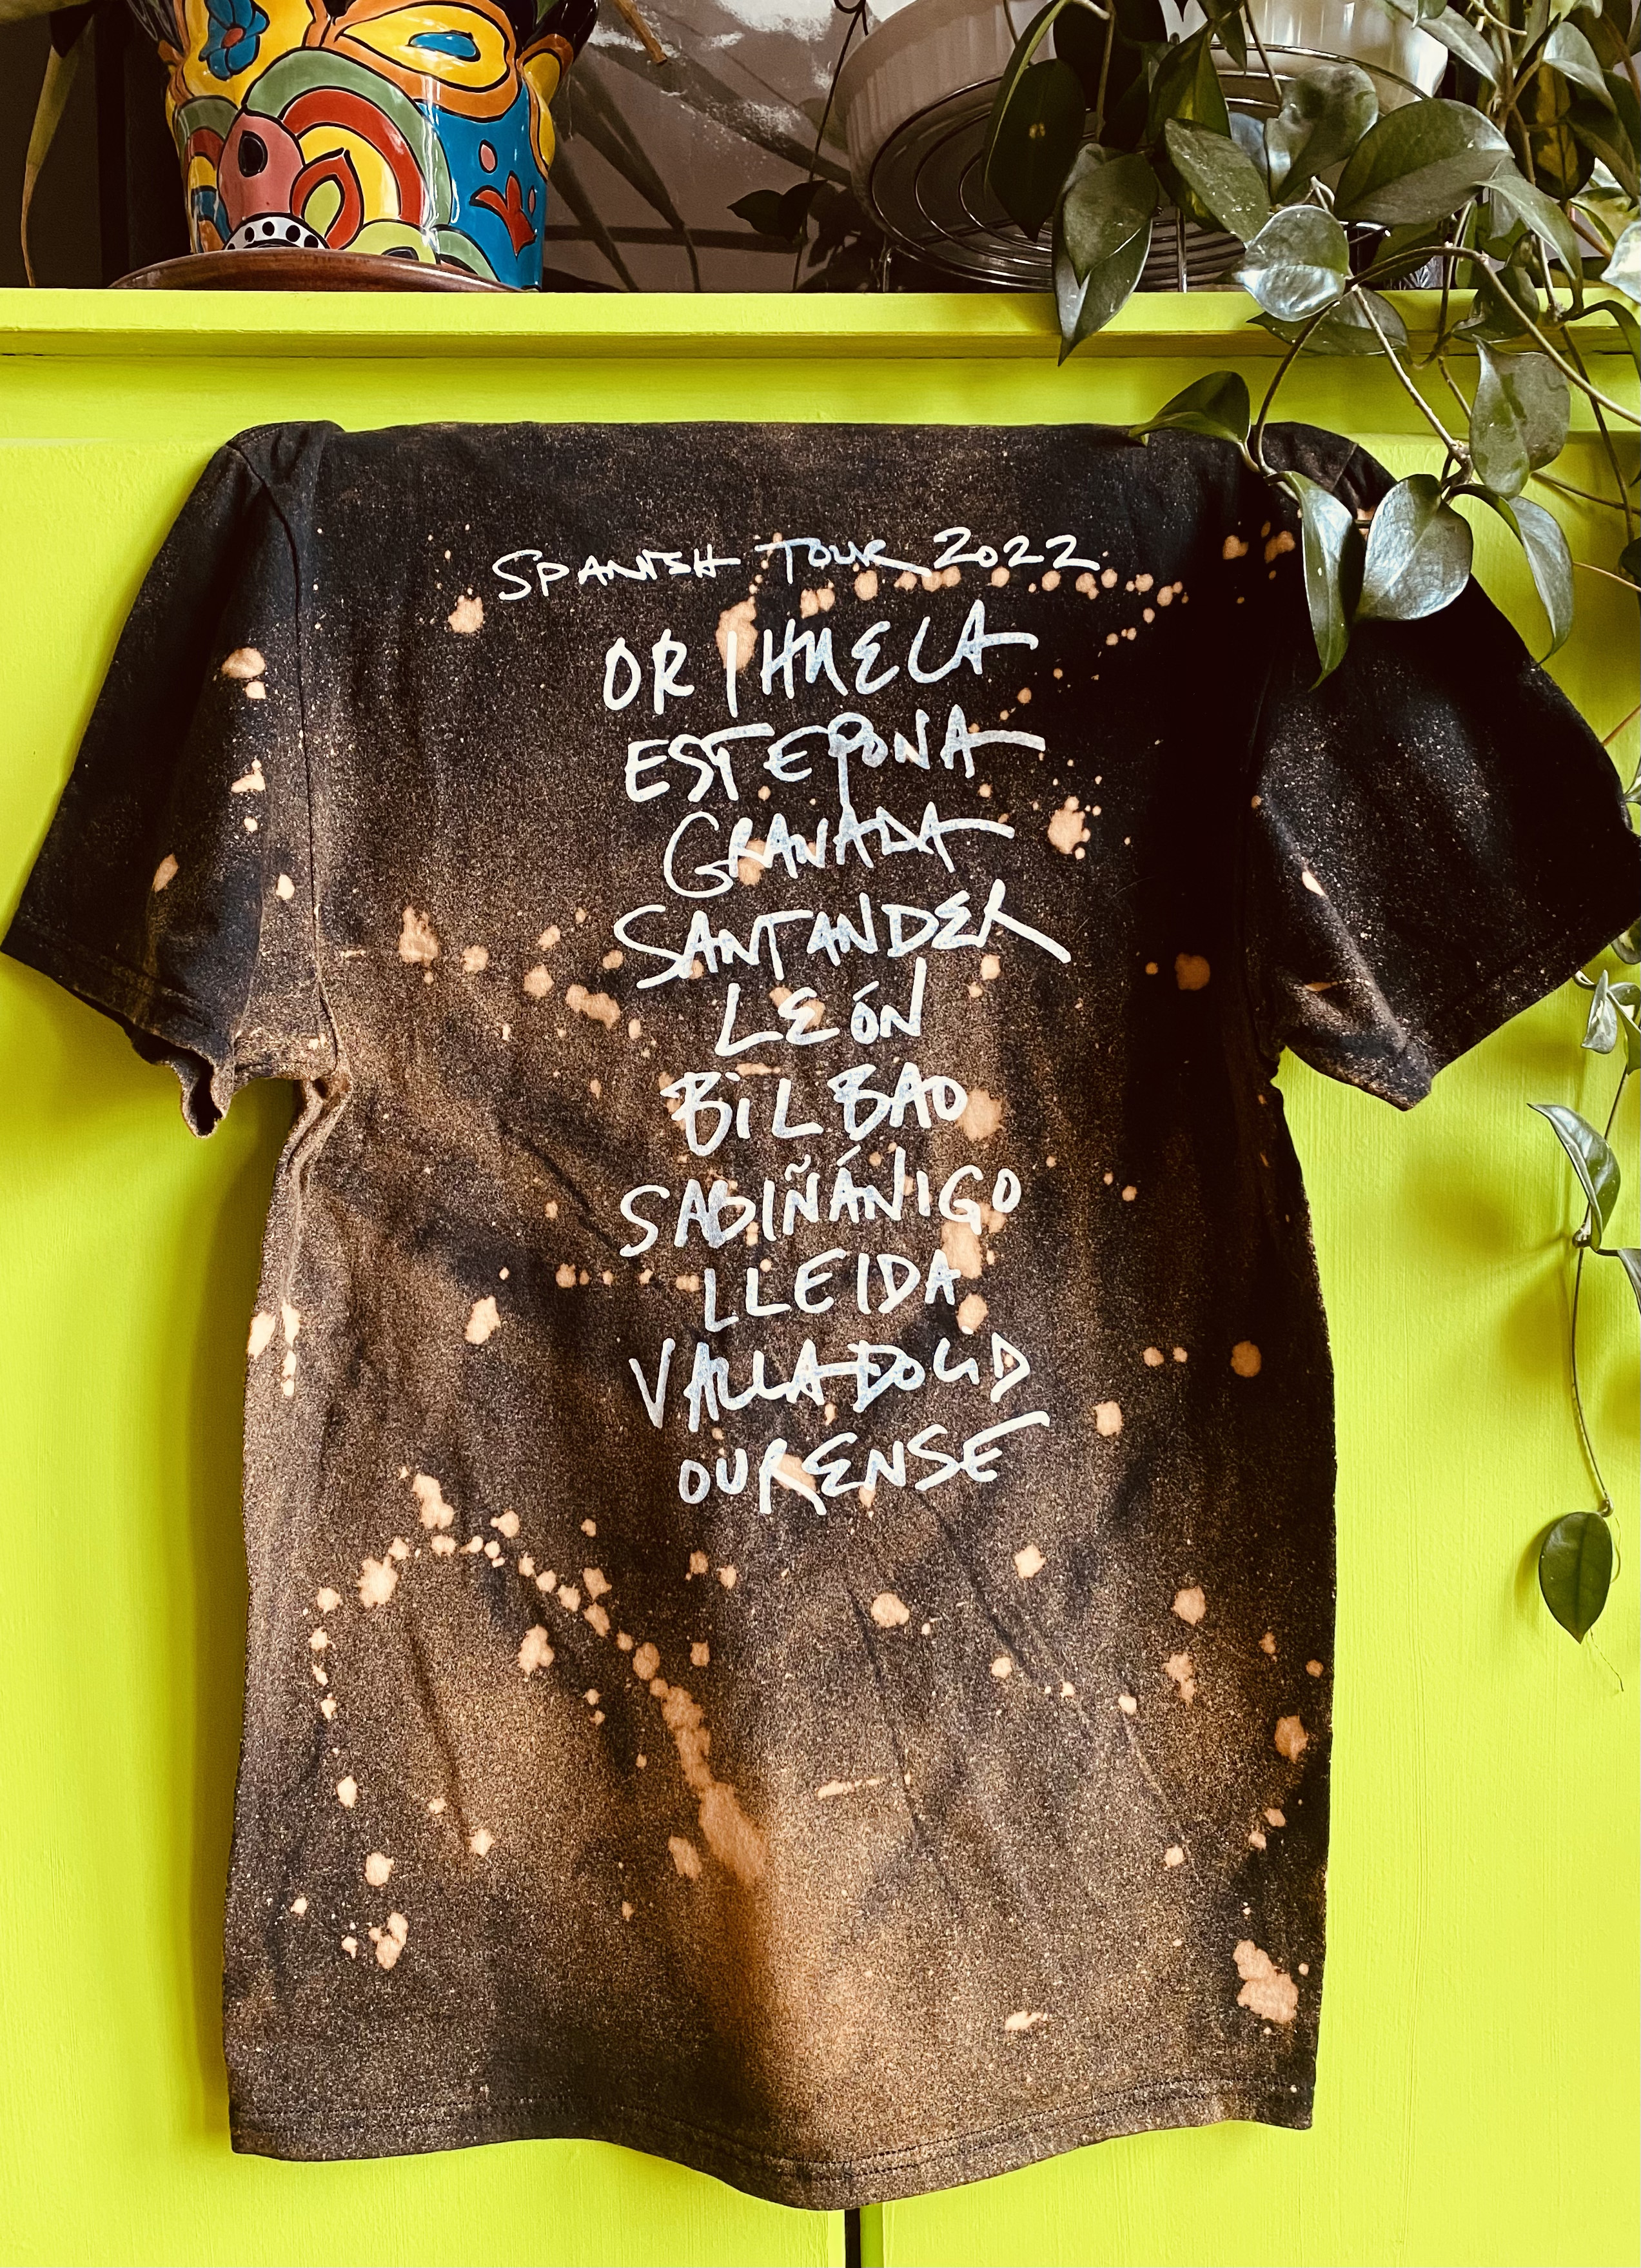 SPANISH TOUR 2022
ORIHUELA
ESTEPONA
GRANADA
SANTANDER
LEÓN
BILBAO
SABIÑÁNIGO
LLEIDA
VALLADOLID
OURENSE